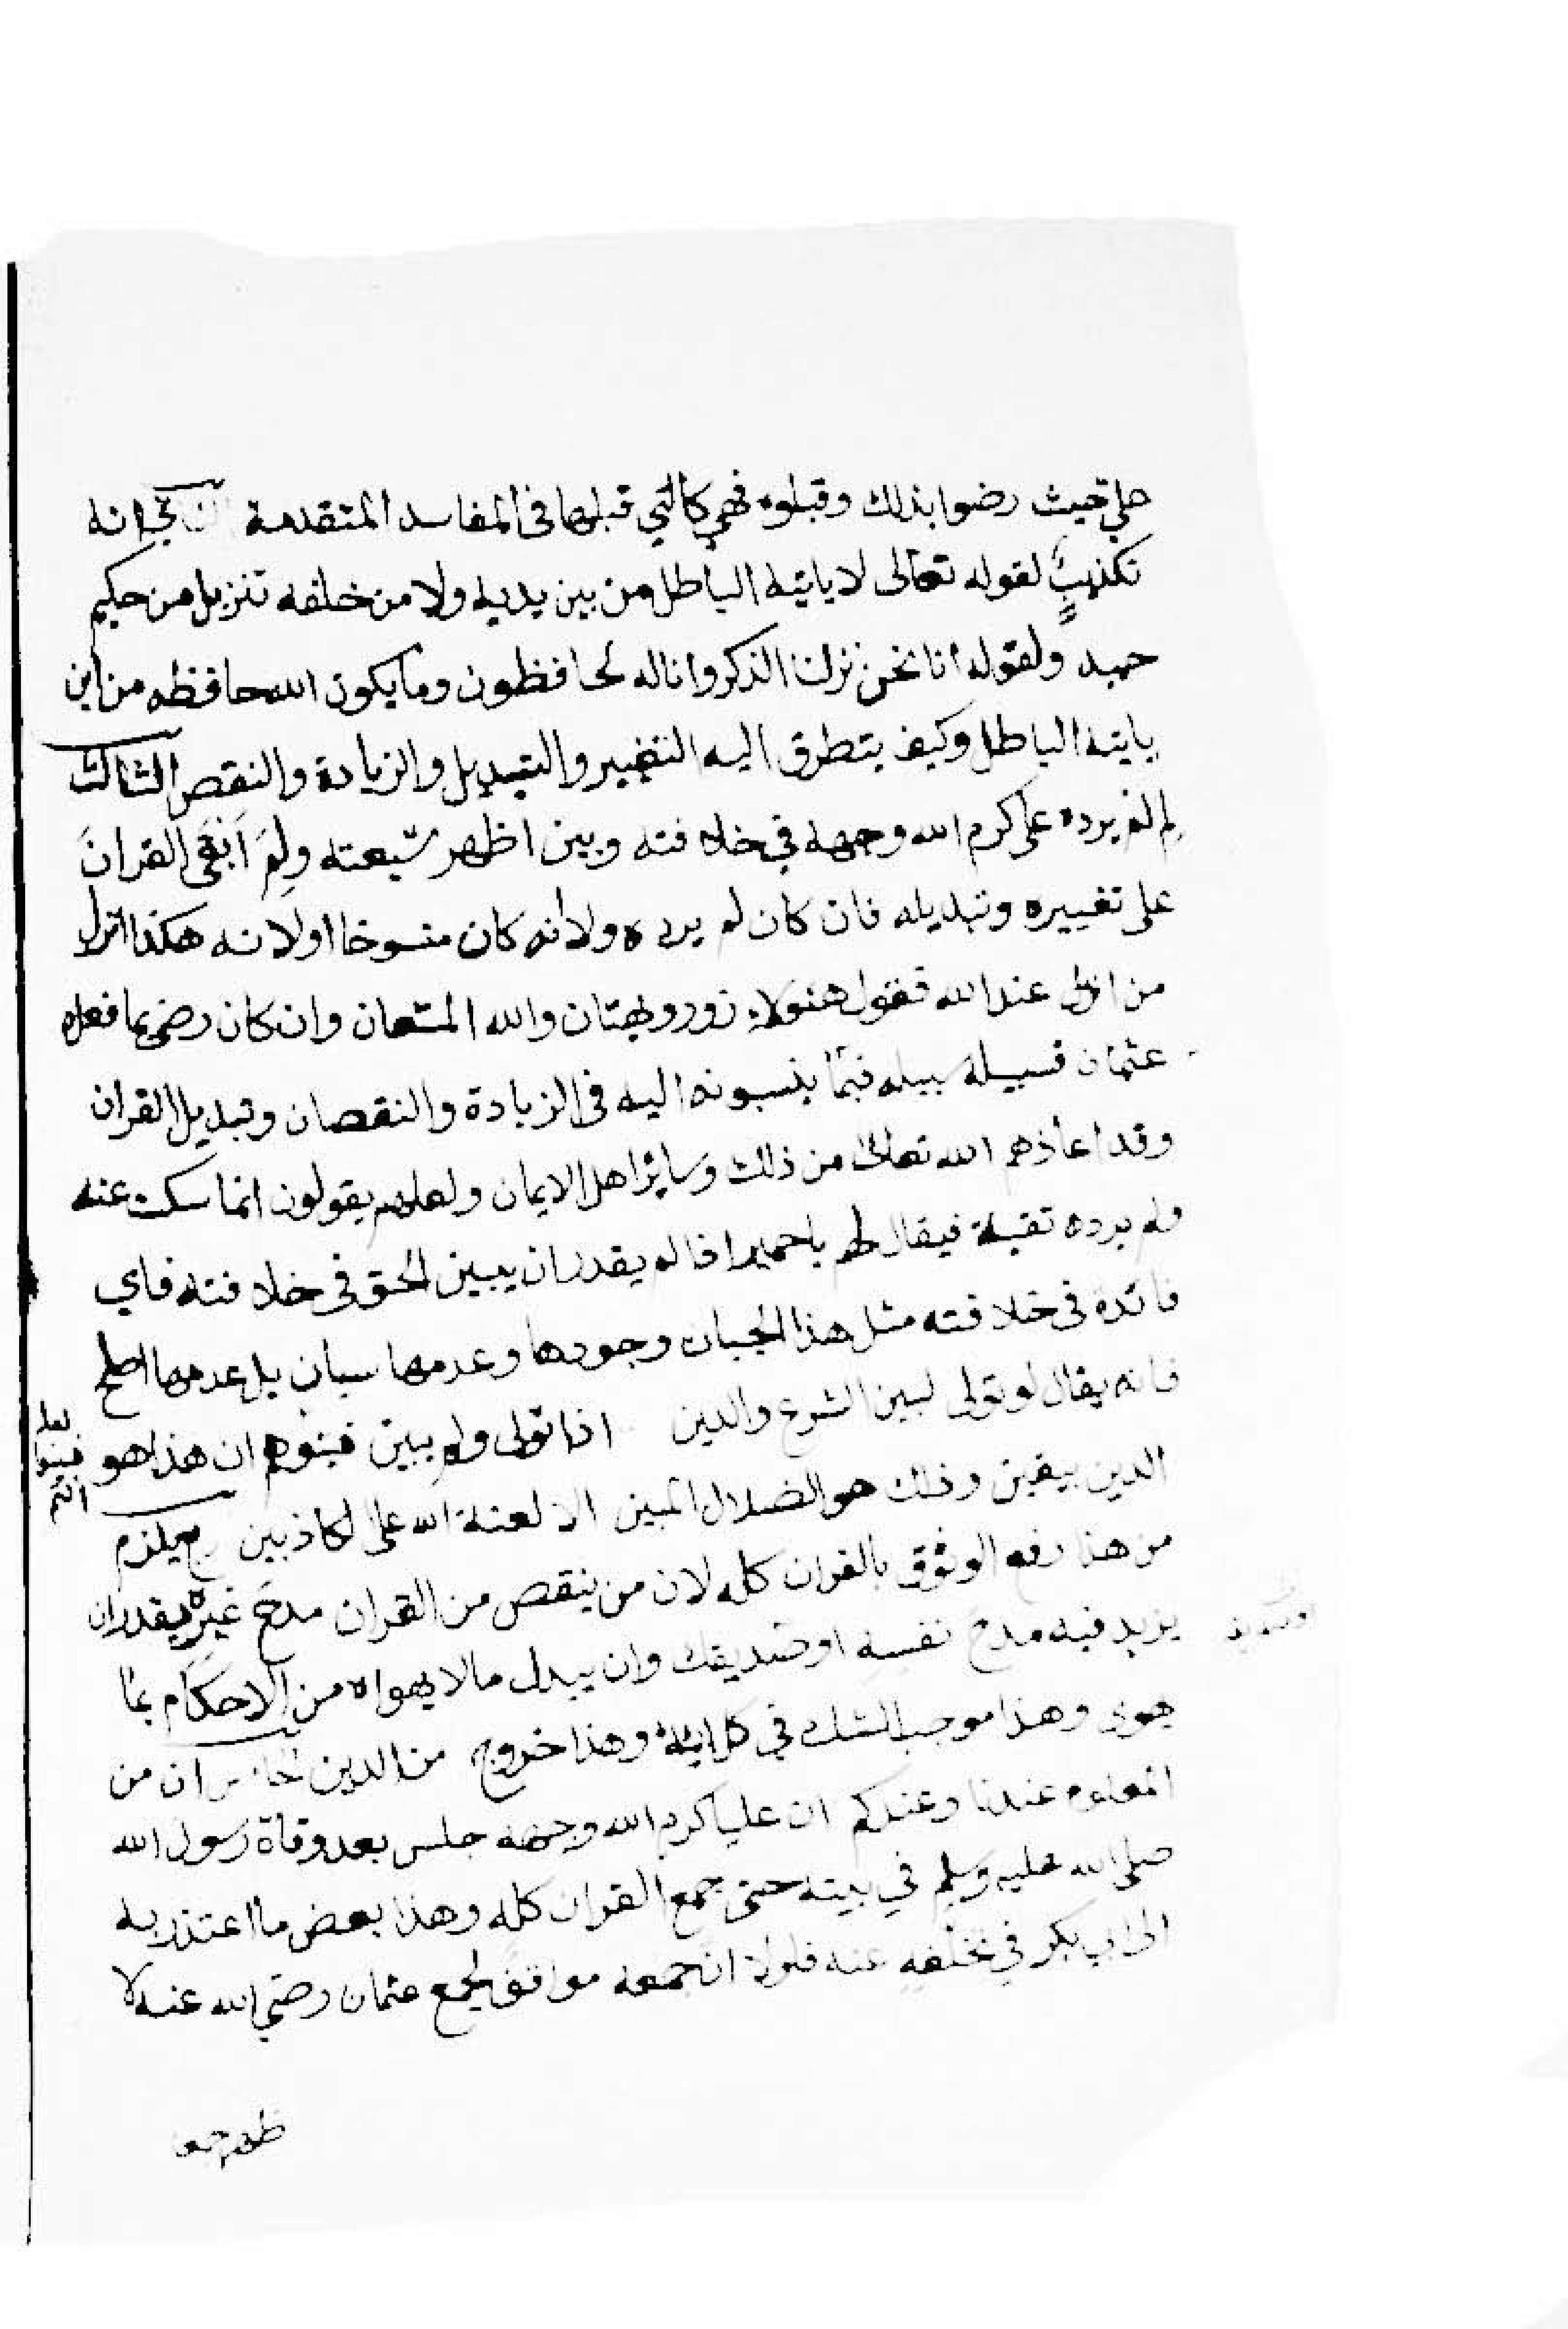 حيث رضوا بذلك وقبلوه فهي كالتي قبلها في المفاسد المتقدمة انه
تكذيب لقوله تعالى لا ياتيه الباطل من بين يديه ولا من خلفه تنزيل من حكيم
حميد ولقوله انا نحن نزلنا الذكر وانا له لحافظون وما يكون الله حافظه من اين
ياتيه الباطل وكيف يتطرق اليه التغيير والتبديل والزيادة والنقص الثالث
لم لم يرده على كرم الله وجهه في خلافته وبين اظهر شيعته ولم ابقى القران
على تغييره وتبديله فان كان لم يرده ولانه كان منسوخا اولانه هكذا انزل
من عند الله فقول هنولاء زور وبهتان والله المستعان وان كان رضي بما فعله
عثمان فسبيله سبيله فيما ينسبونه اليه في الزيادة والنقصان وتبديل القران
وقد اعاذهم الله تعالى من ذلك وسائر اهل الايمان ولعلهم يقولون انما سكت عنه
ولم يرده تقية فيقال لهم يا حمير اذا لم يقدر ان يبين الحق في خلافته فاي
فائدة في خلافته مثل هذا الجبان وجودها وعدمها سيان بل عدمها اصلح
فانه يقال لو تولى لبين الشرع والدين اذا تولى ولم يبين فبينوهم ان هذا هو
لعله فبينوا انتم
الدين بيقين وذلك هو الضلال المبين الا لعنة الله على الكاذبين يلزم
من هذا رفع الوثوق بالقران كله لان من ينقص من القران مدح غيره يقدر ان
يزيد فيه مدح نفسه او صديقه وان يبدل ما لا يهواه من الاحكام بما
يهوى وهذا موجب الشك في كل اية وهذا خروج من الدين الخامس ان من
المعلوم عندنا وعندكم ان عليا كرم الله وجهه جلس بعد وفاة رسول الله
صلى الله عليه وسلم في بيته حتى جمع القران كله وهذا بعض ما اعتذر به
الى ابي بكر في تخلفه عنه فلولا ان جمعه موافق لجمع عثمان رضي الله عنه لا